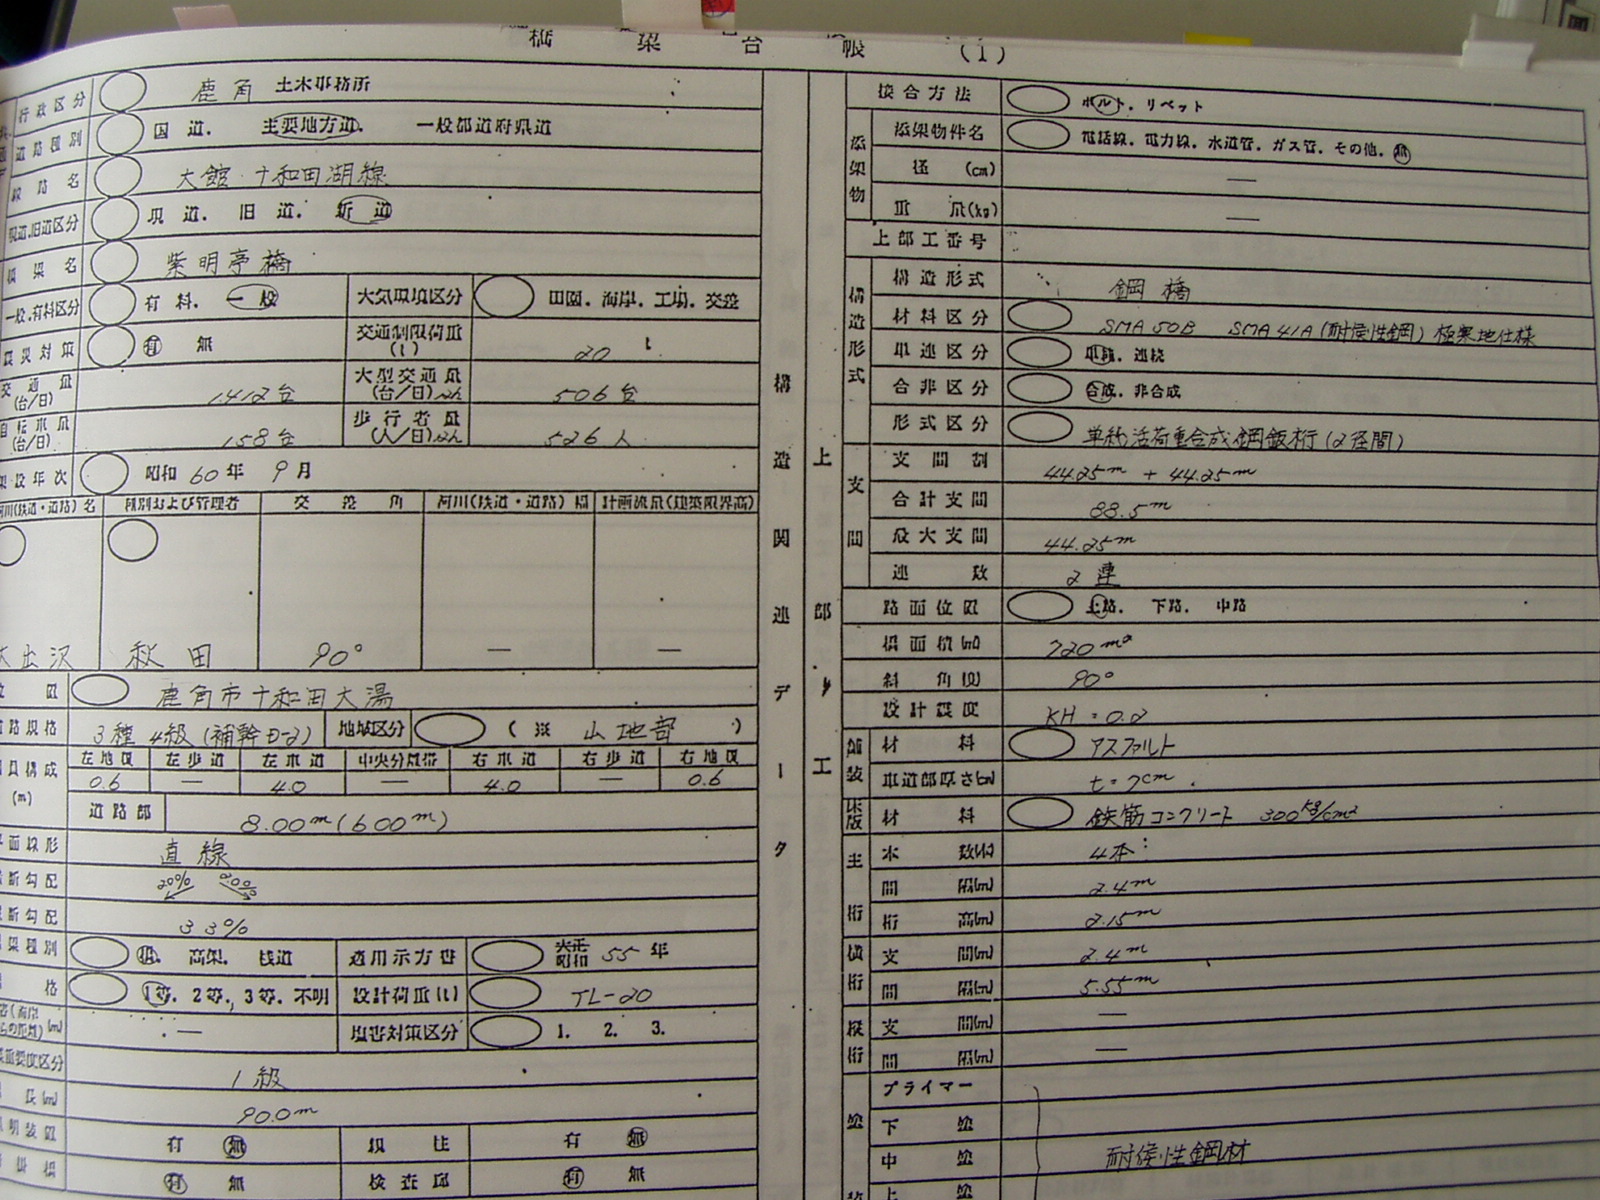 橋 梁 台 帳 (1)
行政区分 鹿角 土木事務所
道路種別 国道. 主要地方道. 一般都道府県道
路 名 大館・十和田湖線
現道.旧道区分 現 道. 旧 道. 新 道
橋 梁 名 紫明亭橋
一般.有料区分 有 料. 一 般 大気環境区分 田園. 海岸. 工場. 交差
震災対策 有 無 交通制限荷重(t) 20 t
交通量(台/日) 1412台 大型交通量(台/日) 506台
自転車量(台/日) 158台 歩行者量(人/日) 526人
架設年次 昭和 60年 9月
河川(鉄道・道路)名 種別および管理者 交差角 河川(鉄道・道路)幅 計画流量(建築限界高)
出沢 秋田 90° — —
鹿角市十和田大湯
道路規格 3種 4級(補幹D-2) 地域区分 ( 山地部 )
左地覆 左歩道 左車道 中央分離帯 右車道 右歩道 右地覆
0.6 — 4.0 — 4.0 — 0.6
(m)
道路部 8.00m(6.00m)
平面線形 直線
横断勾配 2.0% 2.0%
縦断勾配 3.3%
橋梁種別 橋. 高架. 桟道 適用示方書 大正 昭和 55年
格 1等. 2等. 3等. 不明 設計荷重(t) TL-20
— 塩害対策区分 1. 2. 3.
重要度区分 1級
長(m) 90.0m
照明装置 有 無 有 無
有 無 検査 有 無
構造関連データ
上部工
接合方法 ボルト. リベット
添架物 添架物件名 電話線. 電力線. 水道管. ガス管. その他. 無
径 (cm) —
重 量(kg) —
上部工番号
構造形式 構造形式 鋼橋
材料区分 SMA50B SMA41A(耐候性鋼) 極寒地仕様
単連区分 単純. 連続
合非区分 合成. 非合成
形式区分 単純活荷重合成鋼鈑桁(2径間)
支間 支間割 44.25m + 44.25m
合計支間 88.5m
最大支間 44.25m
連 数 2連
路面位置 上路. 下路. 中路
橋面積(㎡) 720m²
斜 角(度) 90°
設計震度 KH=0.2
舗装 材 料 アスファルト
車道部厚さ(cm) t=7cm
床版 材 料 鉄筋コンクリート 300kg/cm²
主桁 本 数(本) 4本
間 隔(m) 2.4m
桁 高(m) 2.15m
横桁 支 間(m) 2.4m
間 隔(m) 5.55m
縦桁 支 間(m) —
間 隔(m) —
プライマー
下 塗
中 塗 耐候性鋼材
上 塗